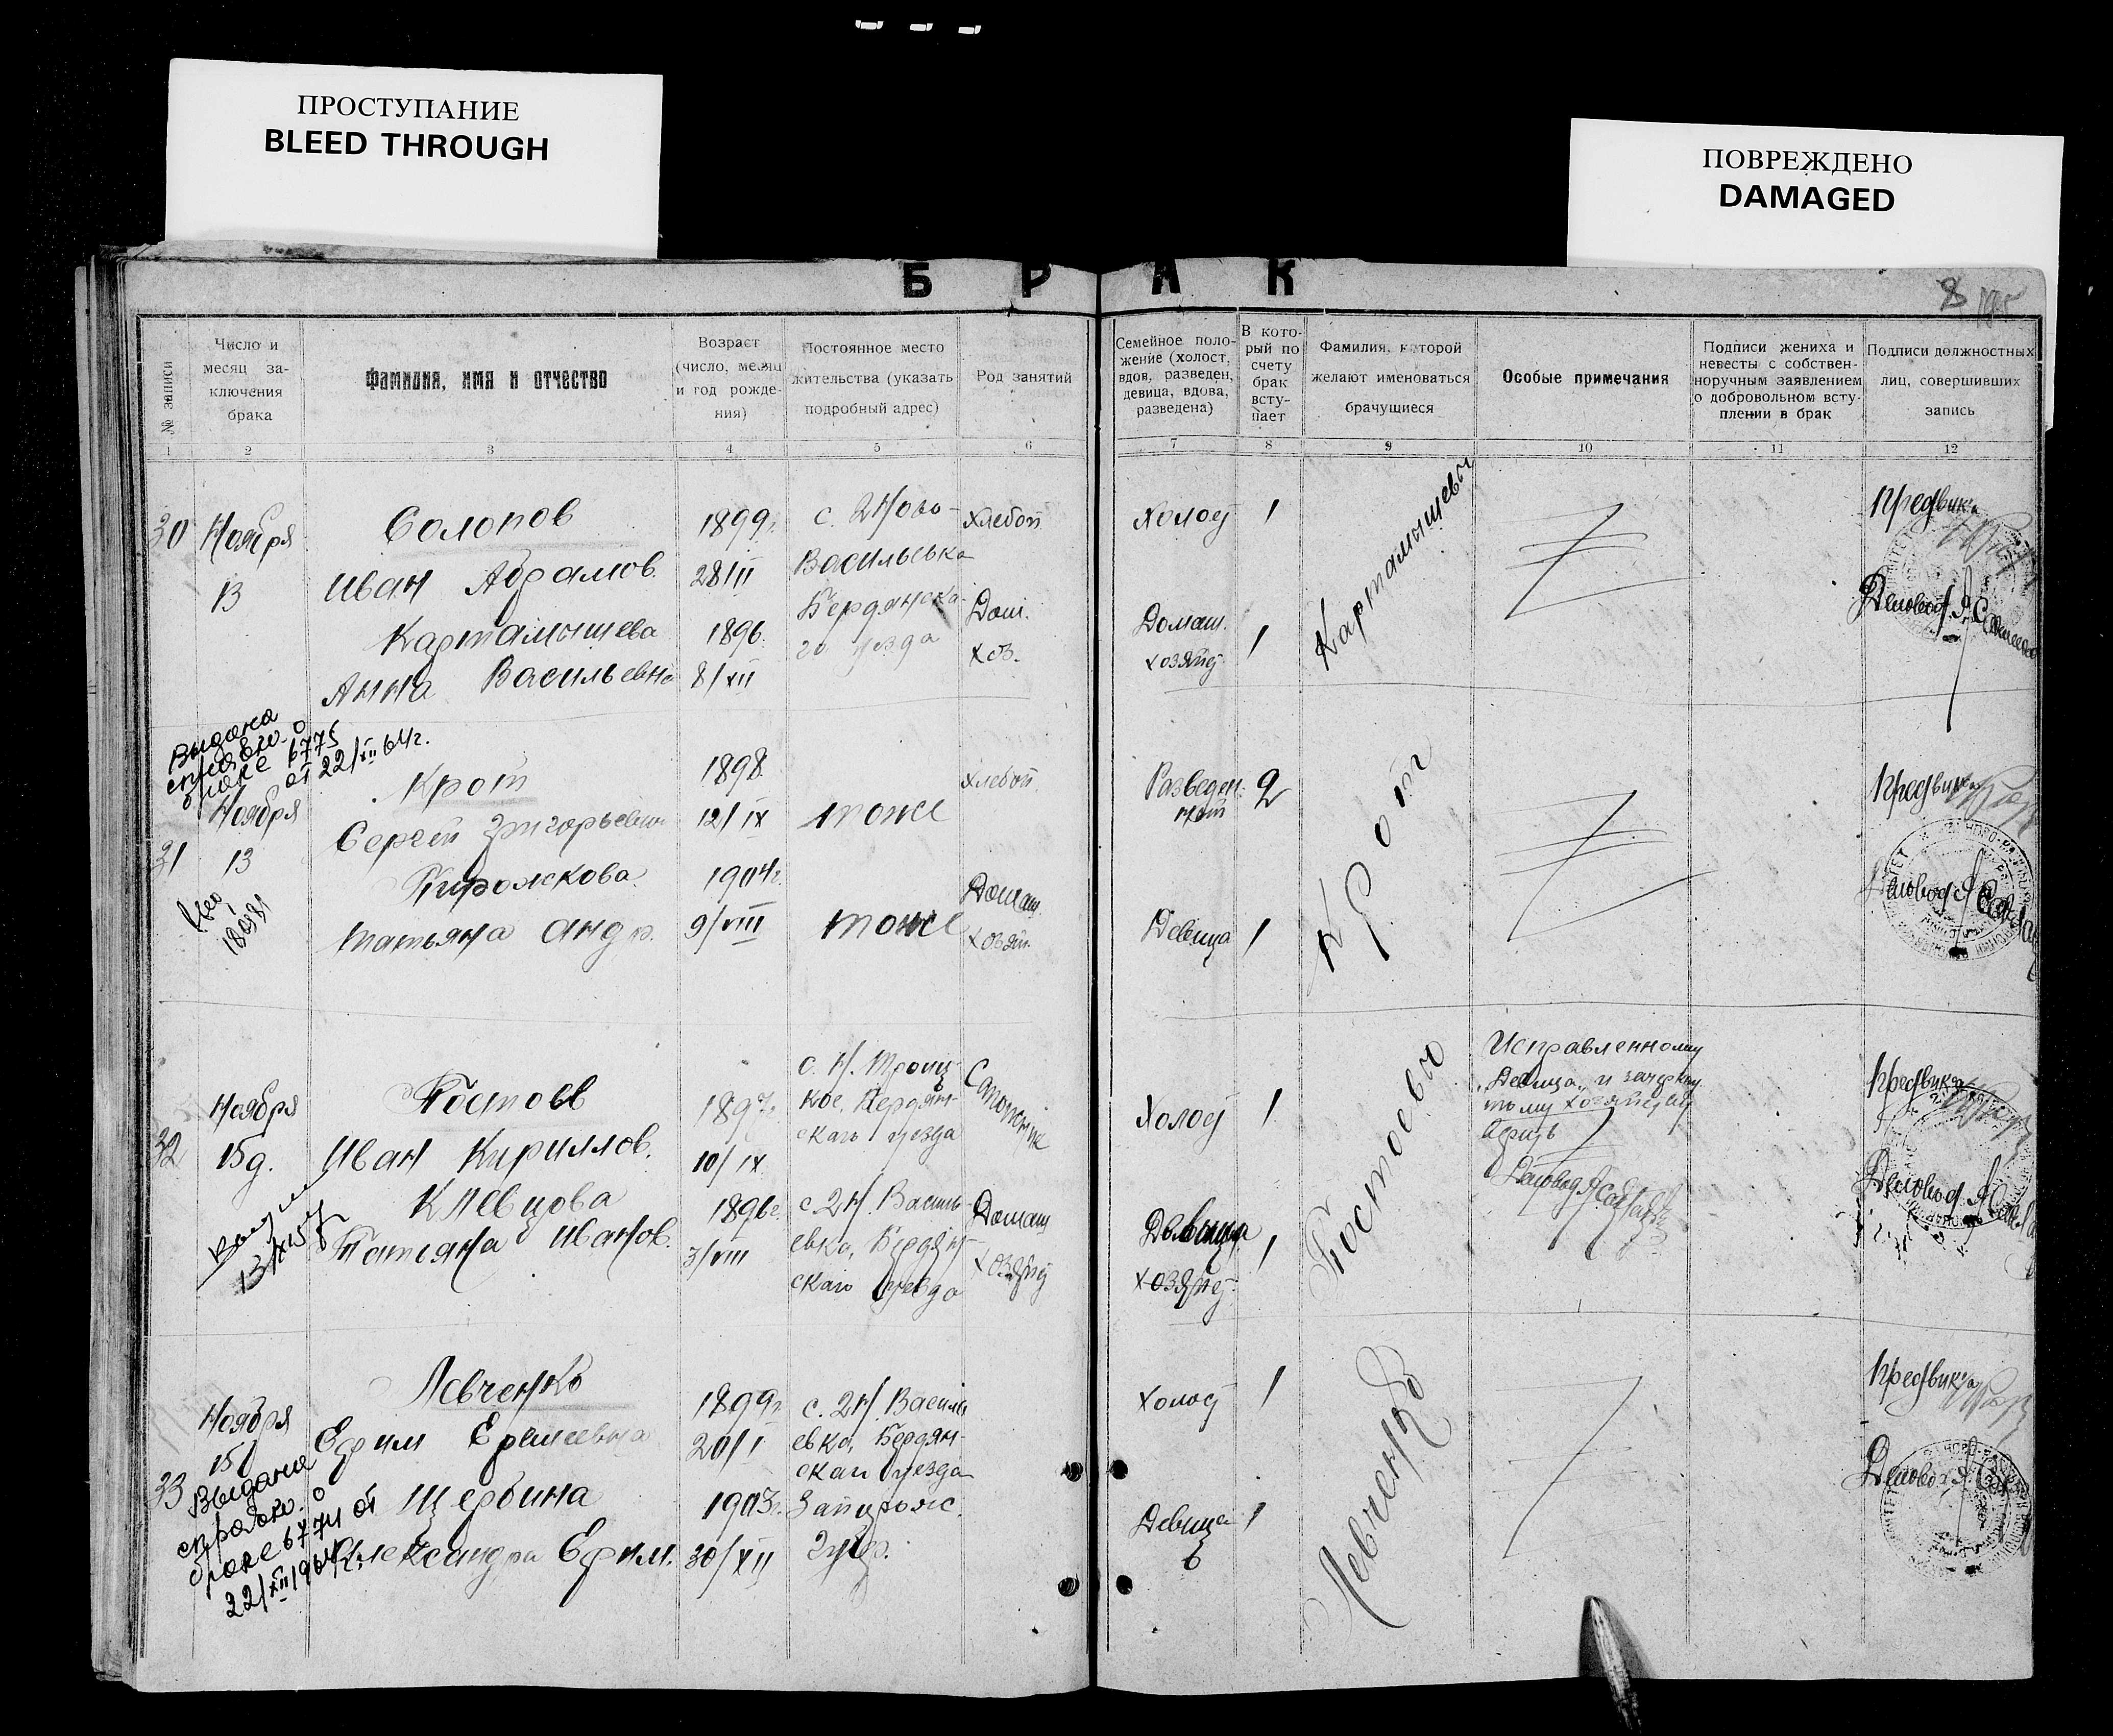 ПРОСТУПАНИЕ
BLEED THROUGH
ПОВРЕЖДЕНО
DAMAGED
БРАК
8
№ записи
Число и месяц заключения брака
Фамилия, имя и отчество
Возраст (число, месяц и год рождения)
Постоянное место жительства (указать подробный адрес)
Род занятий
Семейное положение (холост, вдов, разведен, девица, вдова, разведена)
В который по счету брак вступает
Фамилия, которой желают именоваться брачущиеся
Особые примечания
Подписи жениха и невесты с собственноручным заявлением о добровольном вступлении в брак
Подписи должностных лиц, совершивших запись
1 2 3 4 5 6 7 8 9 10 11 12
30
Ноября
13
Солопов
Иван Абрамов.
Картамышева
Анна Васильевна
1899г.
28/II
1896.
8/XII
с. 2 Ново-
Васильевка
Бердянска-
го уезда
Хлебоп
Дом.
хоз.
Холос
Домаш.
хозяйс
1
1
Картамышевы
Предвика
Деловод
Выдана
справк. о
браке 6775
от 22/XII 64г.
31
Ноября
13
Крот
Сергей Григорьевич
Татьяна Андр.
1898
12/IX
1904г.
9/VIII
тоже
тоже
Хлебоп.
Домаш.
хозяй.
Разведен.
Девица
2
1
Крот
Предвика
Деловод
32
Ноября
15д.
13/IX 57
Постоев
Иван Кириллов.
Клевцова
Татьяна Иванов.
1897г.
10/IX
1896г.
3/VIII
с. Н. Троиц-
кое, Бердян-
скаго уезда
с. 2 Н. Василь-
евка, Бердян-
скаго уезда
Сапожник
Домаш
хозяйс
Холос
Девица
хозяйс.
1
1
Постоевы
Исправленному
"Девица" и зачеркну
тому хозяйству
верить
Деловод
Предвика
Деловод
33
Ноября
15
Выдана
справк. о
браке 6774 от
22/XII 1964г.
Левченко
Ефим Еремеевич
Щербина
Александра Ефим.
1899г.
20/I
1903г.
30/XII
с. 2 Н. Василь
евка, Бердян-
скаго уезда
Запорожс.
Губер.
Холос
Девица
1
1
Левченко
Предвика
Деловод